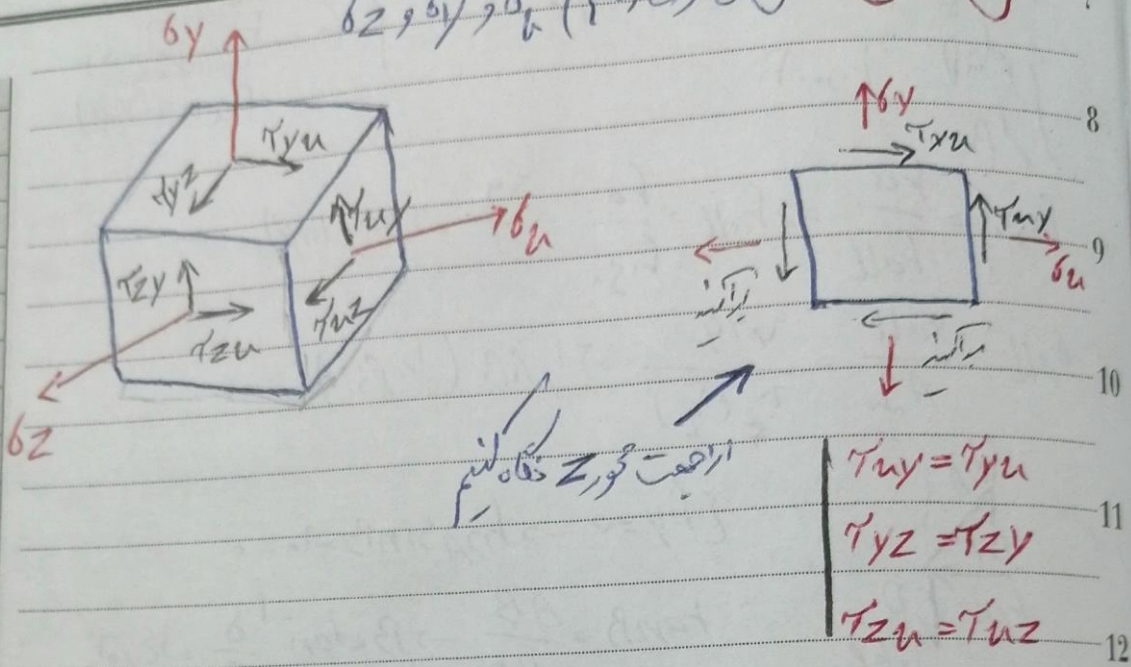 σz و σy و σx
σy
τyx
τyz
τxy
σx
τxz
τzy
τzx
σz
σy
τxx
τxy
σx
از جهت محور z نگاه کنیم
τxy = τyx
τyz = τzy
τzx = τxz
8
9
10
11
12